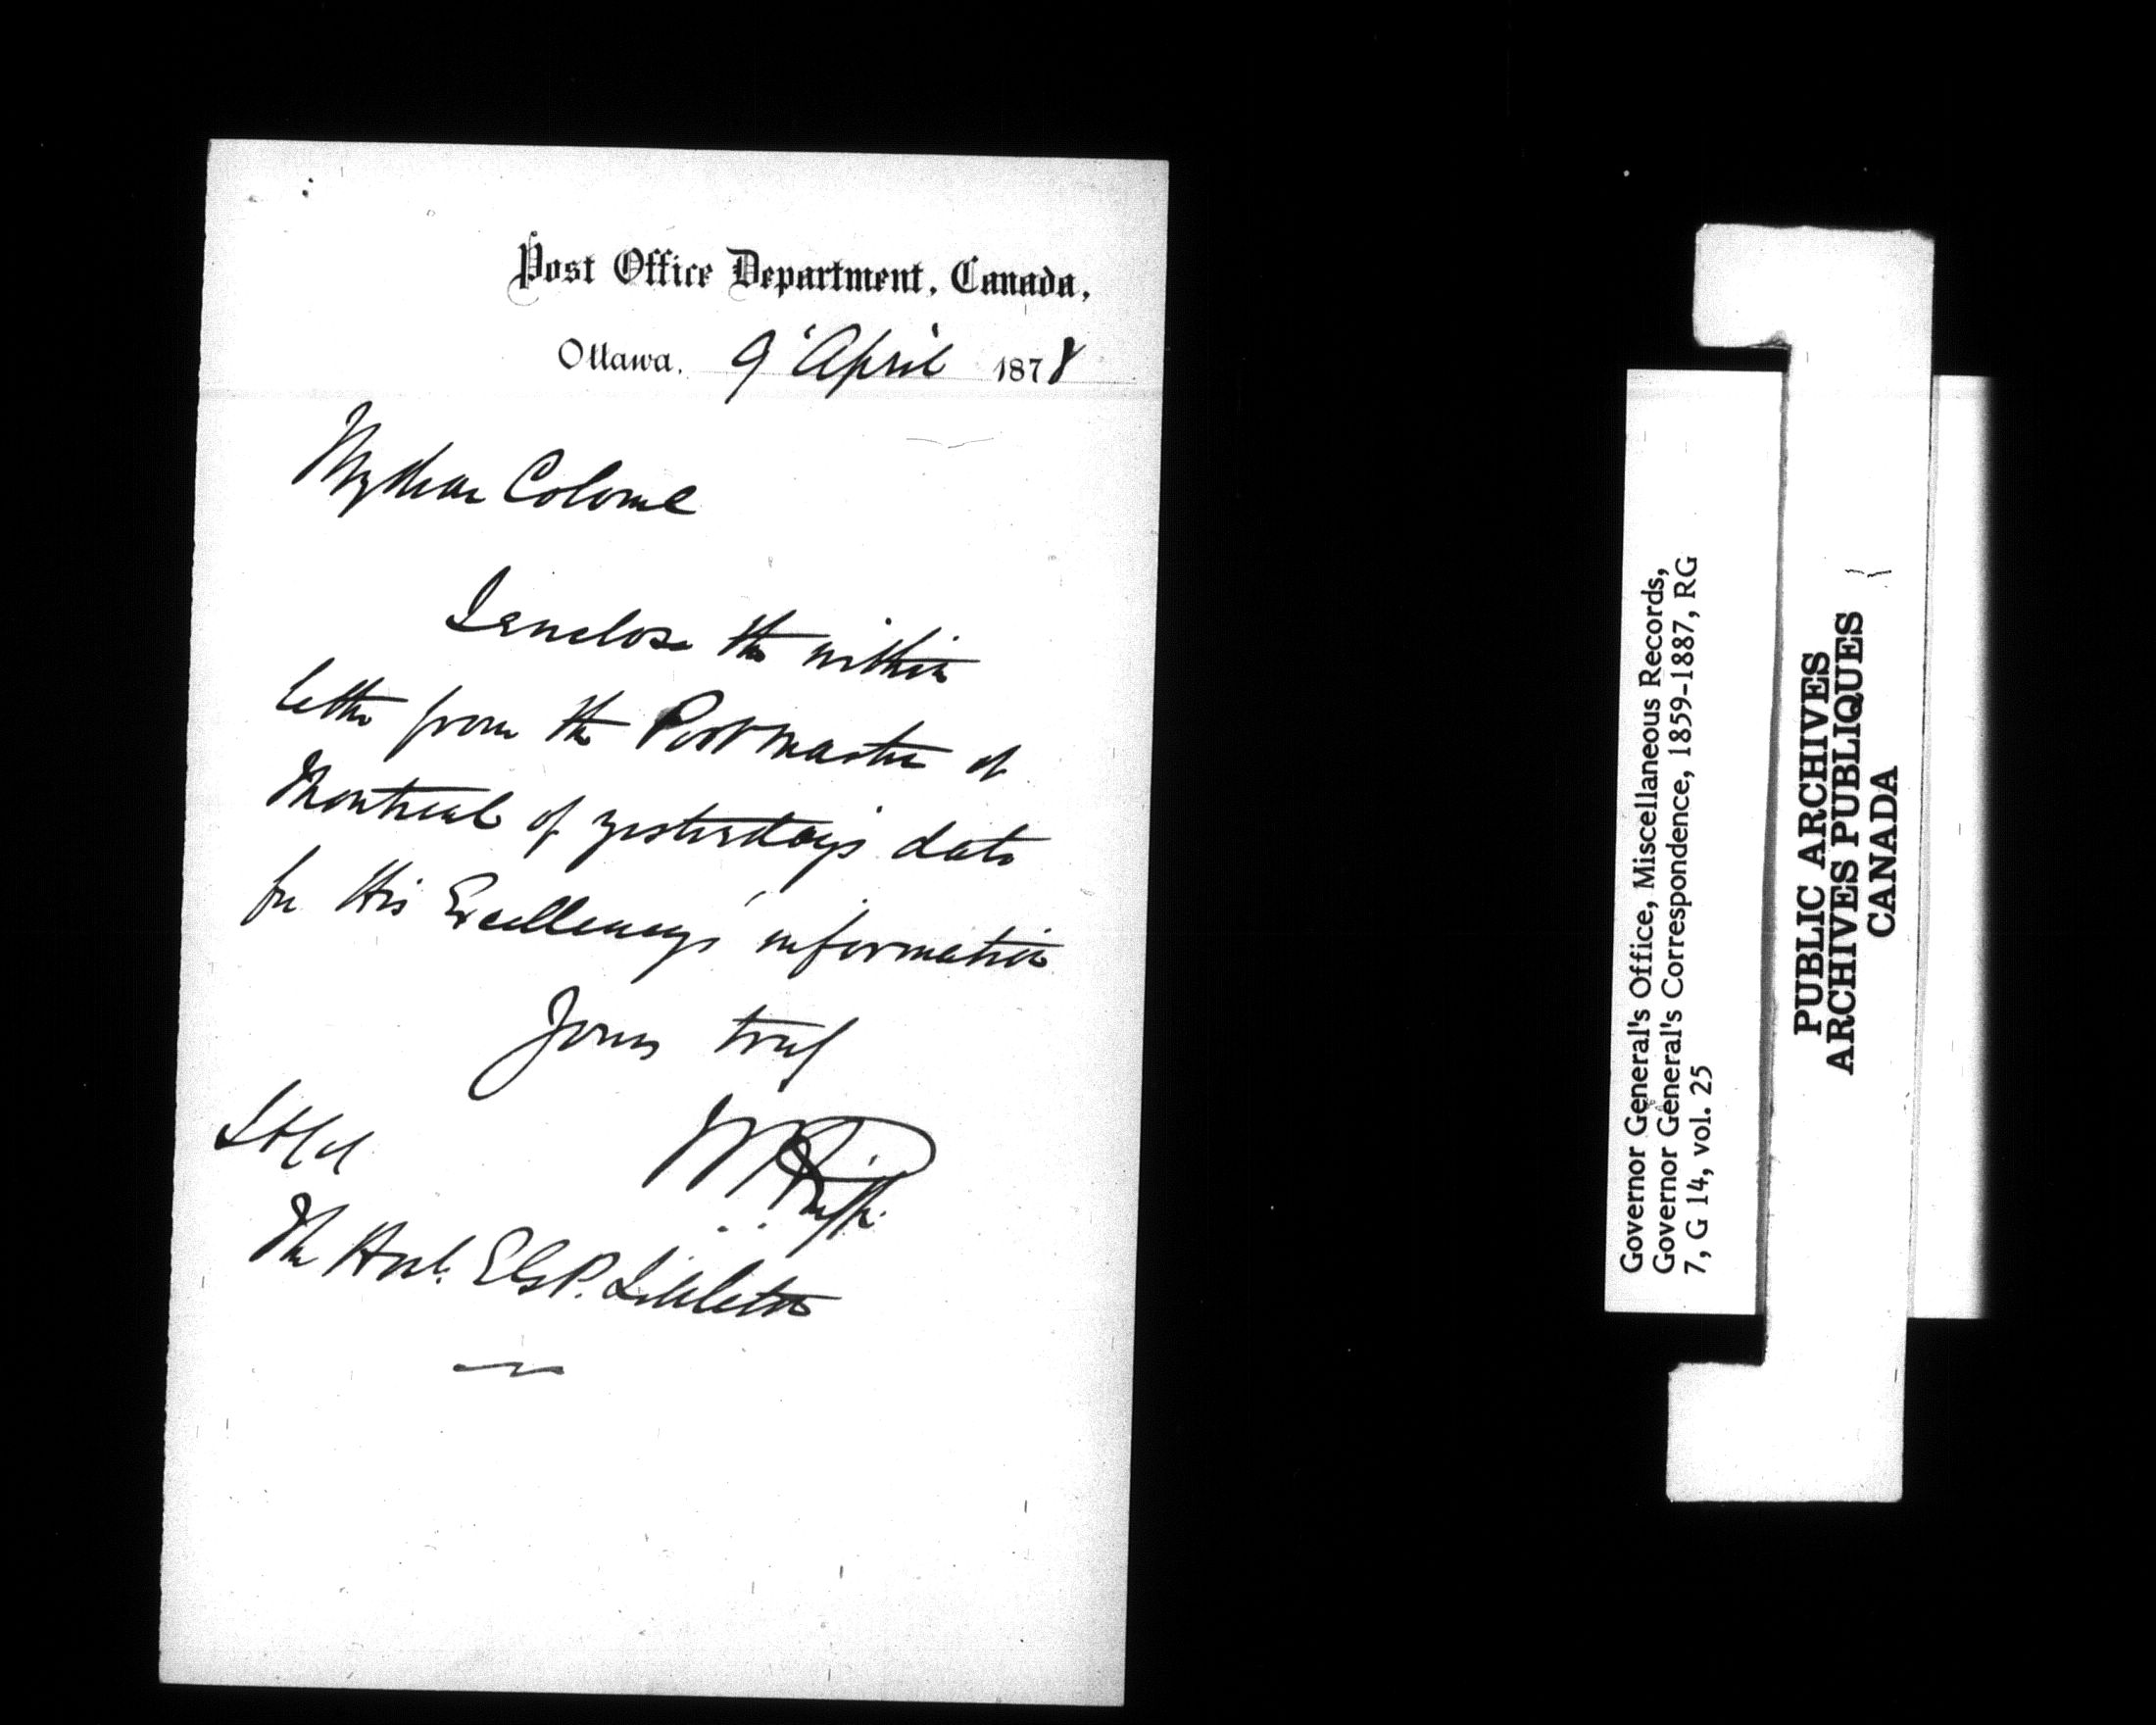 Post Office Department, Canada,
Ottawa, 9 April 1878
My dear Colonel
I enclose the within
letter from the Postmaster of
Montreal of yesterday's date
for His Excellency's information
Yours truly
Lt Col
The Honl. E G P. Littleton
Governor General's Office, Miscellaneous Records,
Governor General's Correspondence, 1859-1887, RG
7, G 14, vol. 25
PUBLIC ARCHIVES
ARCHIVES PUBLIQUES
CANADA